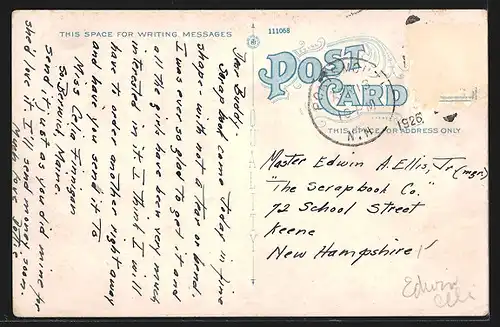 THIS SPACE FOR WRITING MESSAGES
111058
POST CARD
THIS SPACE FOR ADDRESS ONLY
N.H.
1926
Dear Buddy.
Scrap book came today in fine
shape - with not a tear or bend.
I was ever so glad to get it and
all the girls have been very much
interested in it I think I will
have to order another right away
and have you send it to
Miss Celia Finnigan
So Berwick Maine
Send it just as you did mine for
she'd like it. I'll send money soon
Much love
Master Edwin A. Ellis, Jr (mgr)
"The Scrapbook Co."
72 School Street
Keene
New Hampshire
Edwin
Ellis